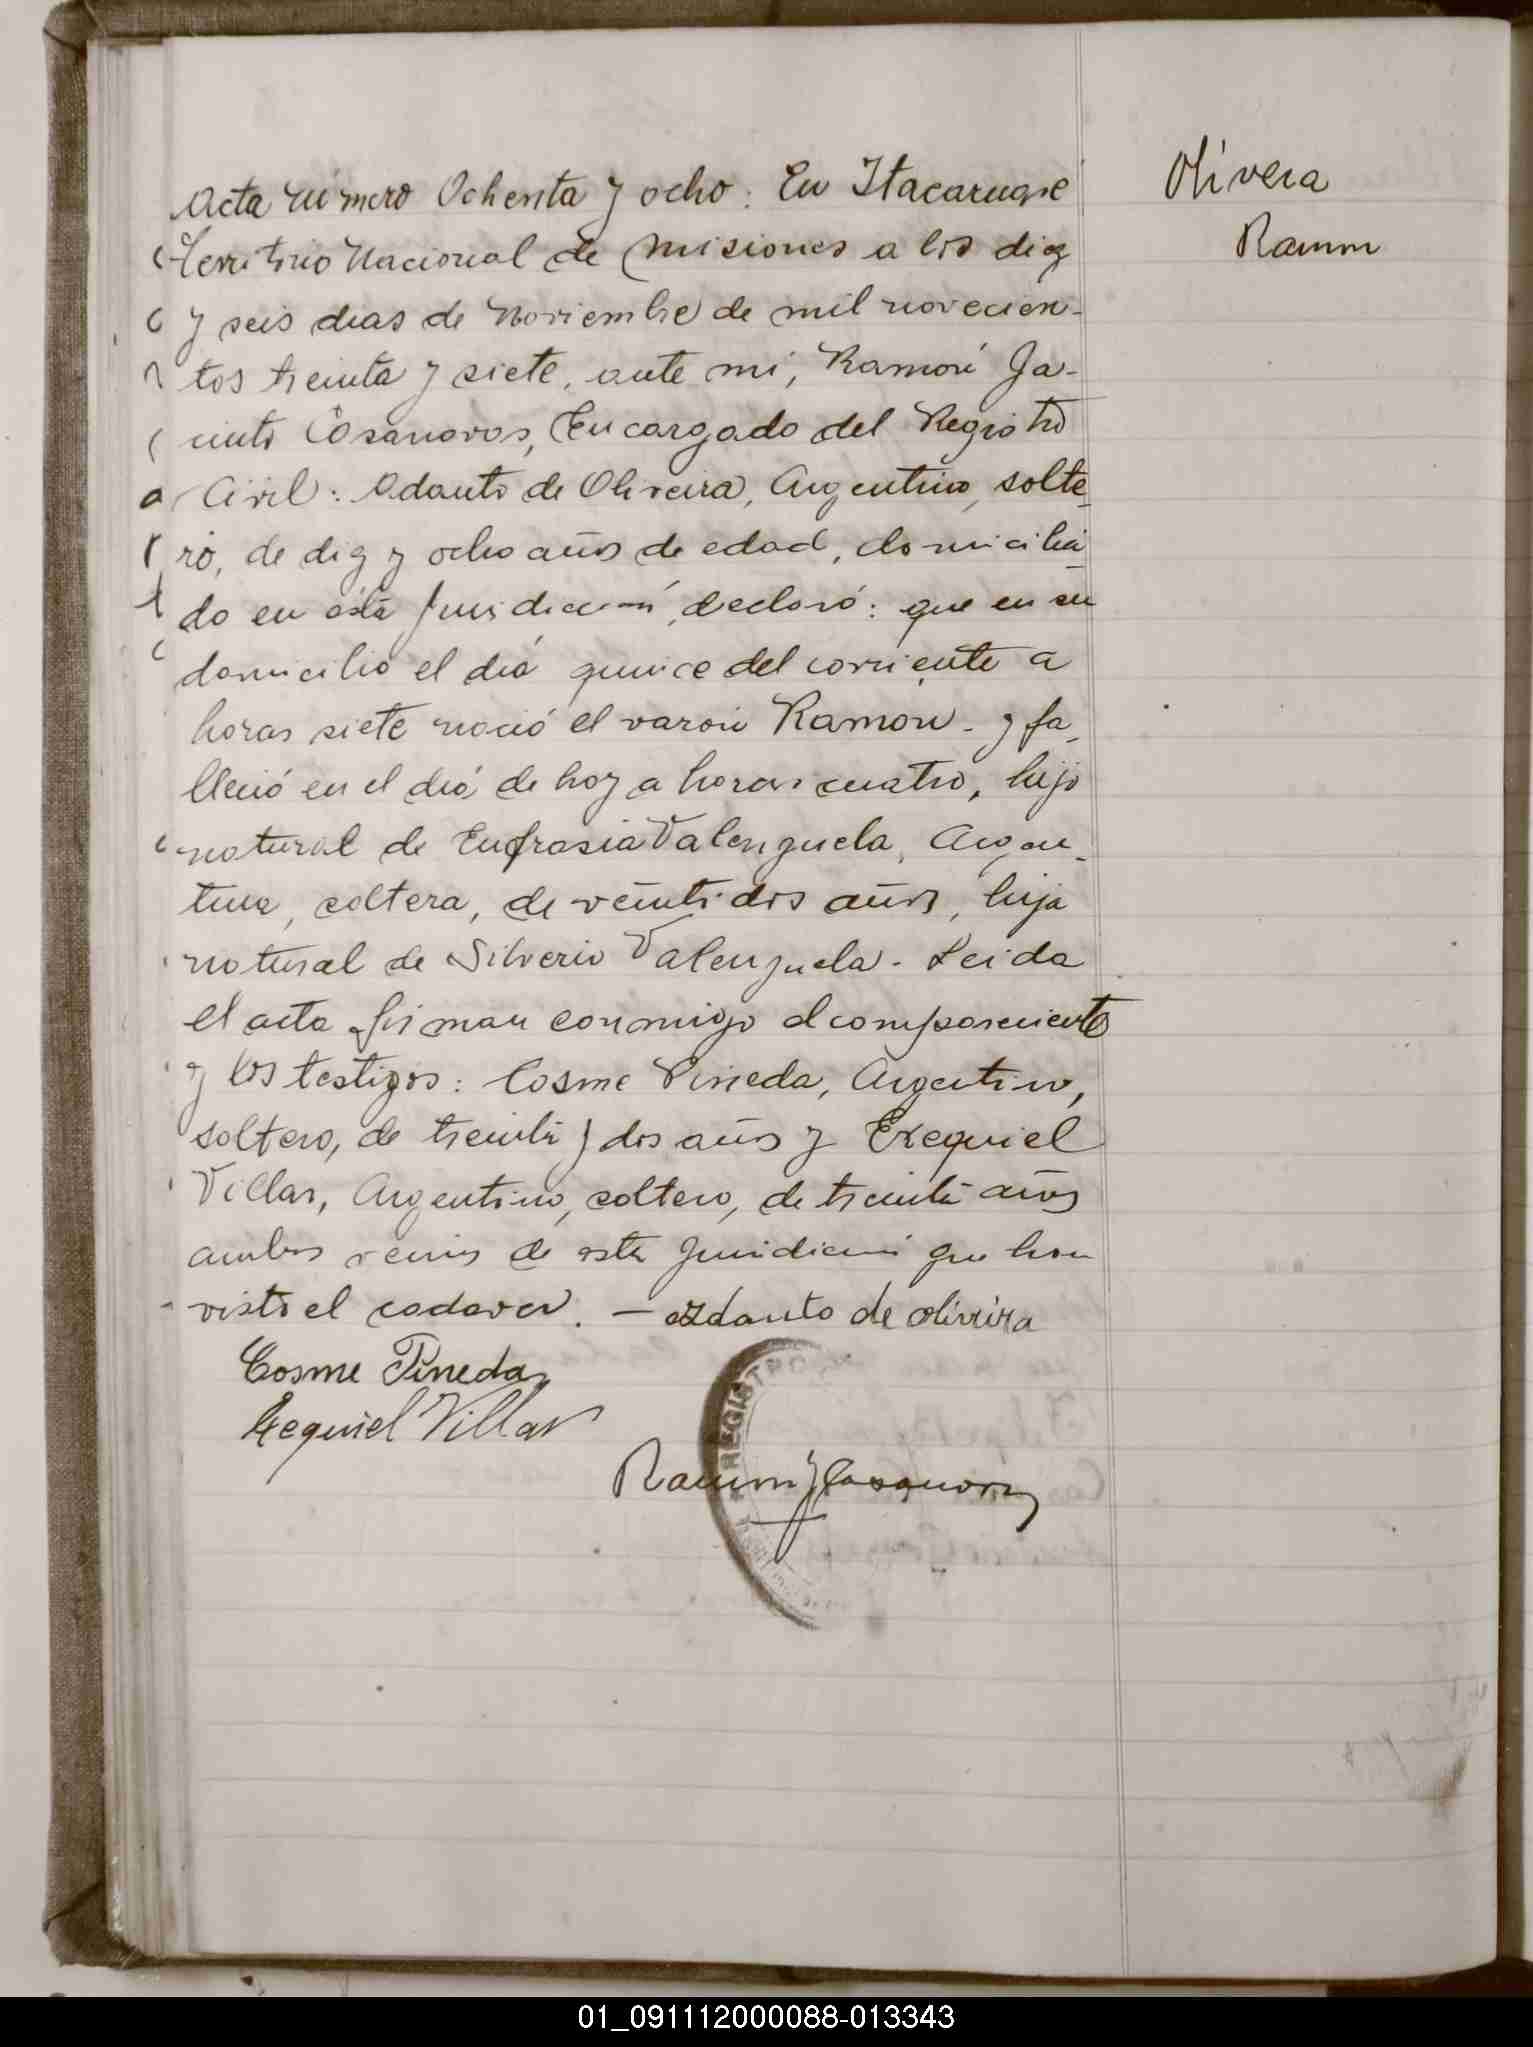 Acta número Ochenta y ocho: En Itacaruaré
Territorio Nacional de Misiones a los diez
y seis dias de Noviembre de mil novecien-
tos treinta y siete, ante mi, Ramón Ja-
cinto Casanovas, Encargado del Registro
Civil: Adauto de Oliveira, Argentino, solte-
ro, de diez y ocho años de edad, domicilia-
do en ésta Jurisdicción, declaró: que en su
domicilio el diá quince del corriente a
horas siete nació el varón Ramón - y fa-
lleció en el diá de hoy a horas cuatro, hijo
natural de Eufrasia Valenzuela, Argen-
tina, soltera, de veintidos años, hija
natural de Silverio Valenzuela. Leida
el acta firman conmigo el compareciente
y los testigos: Cosme Pineda, Argentino,
soltero, de treinta y dos años y Ezequiel
Villar, Argentino, soltero, de treinta años
ambos vecinos de esta Jurisdicción que han
visto el cadaver. — Adauto de oliveira
Cosme Pineda
Ezequiel Villar
Ramon J Casanovas
REGISTRO
Olivera
Ramon
01_091112000088-013343